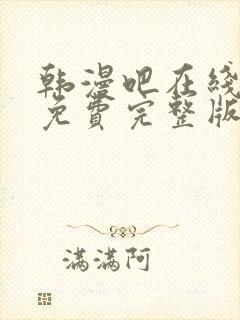 韩漫吧在线
免費完整版
满满阿